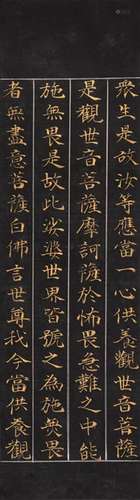 衆生是故汝等應當一心供養觀世音菩薩
是觀世音菩薩摩訶薩於怖畏急難之中能
施無畏是故此娑婆世界皆號之為施無畏
者無盡意菩薩白佛言世尊我今當供養觀